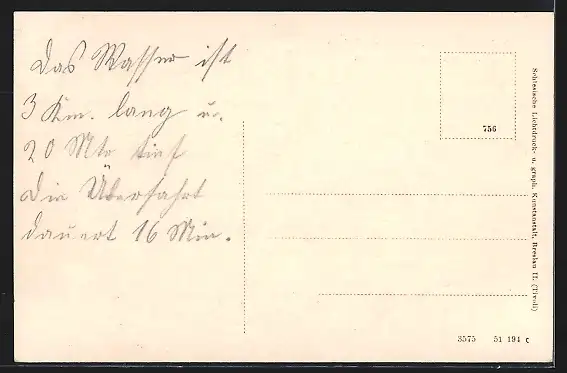 Das Wasser ist
3 Km. lang u.
20 Mtr tief
Die Überfahrt
dauert 16 Min.
756
Schlesische Lichtdruck- u. graph. Kunstanstalt, Breslau II. (Tivoli)
3575 51 194 c